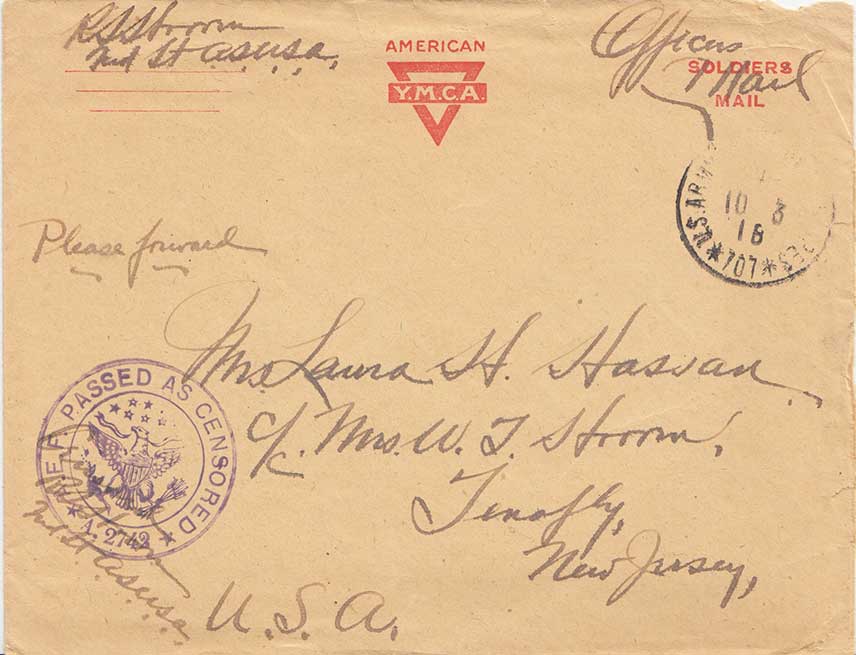 R S Stroom
1st Lt A.S.U.S.A.
AMERICAN
Y.M.C.A.
Officers
Mail
SOLDIERS
MAIL
U.S. ARMY
10 3
18
*707*
Please forward
Mrs. Laura H. Hassan
c/o Mrs. W. T. Stroom,
Tenafly,
New Jersey,
U.S.A.
A.E.F. PASSED AS CENSORED
* A. 2742 *
1st Lt A.S.U.S.A.